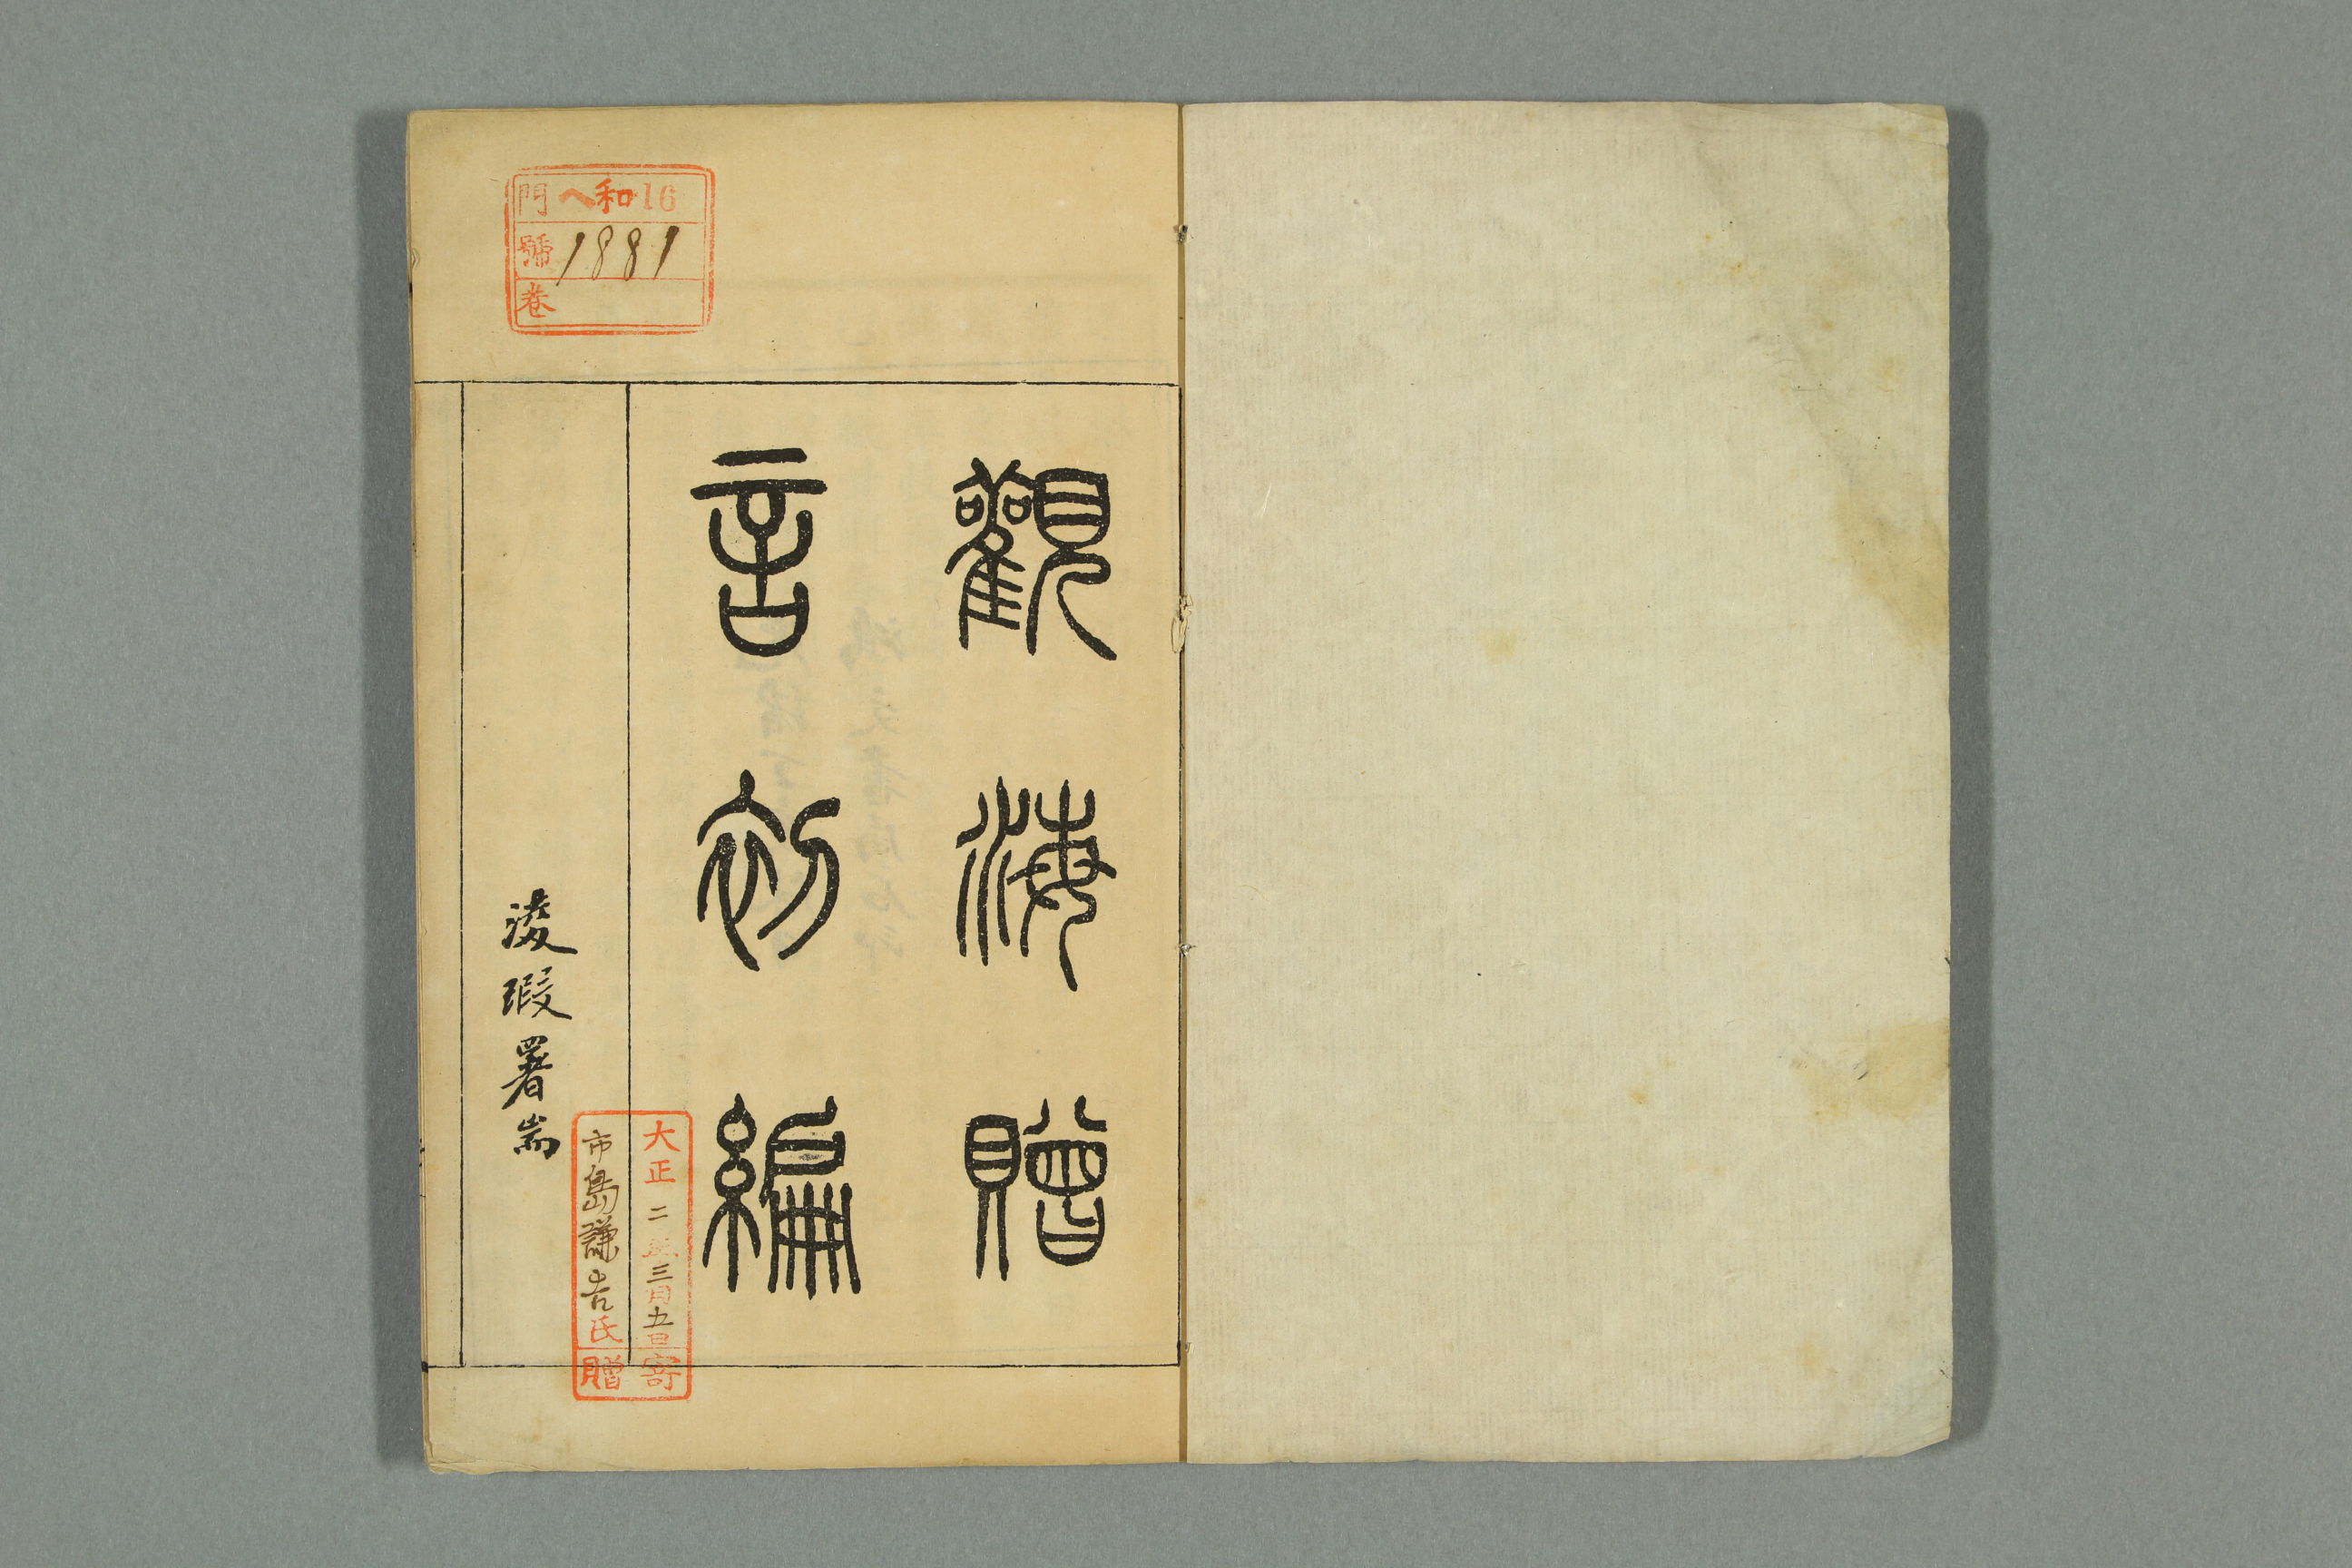 門 ヘ和16
號 1881
卷
觀海贈
言初編
淩瑕署耑
大正二年三月五日寄
市島謙吉氏贈